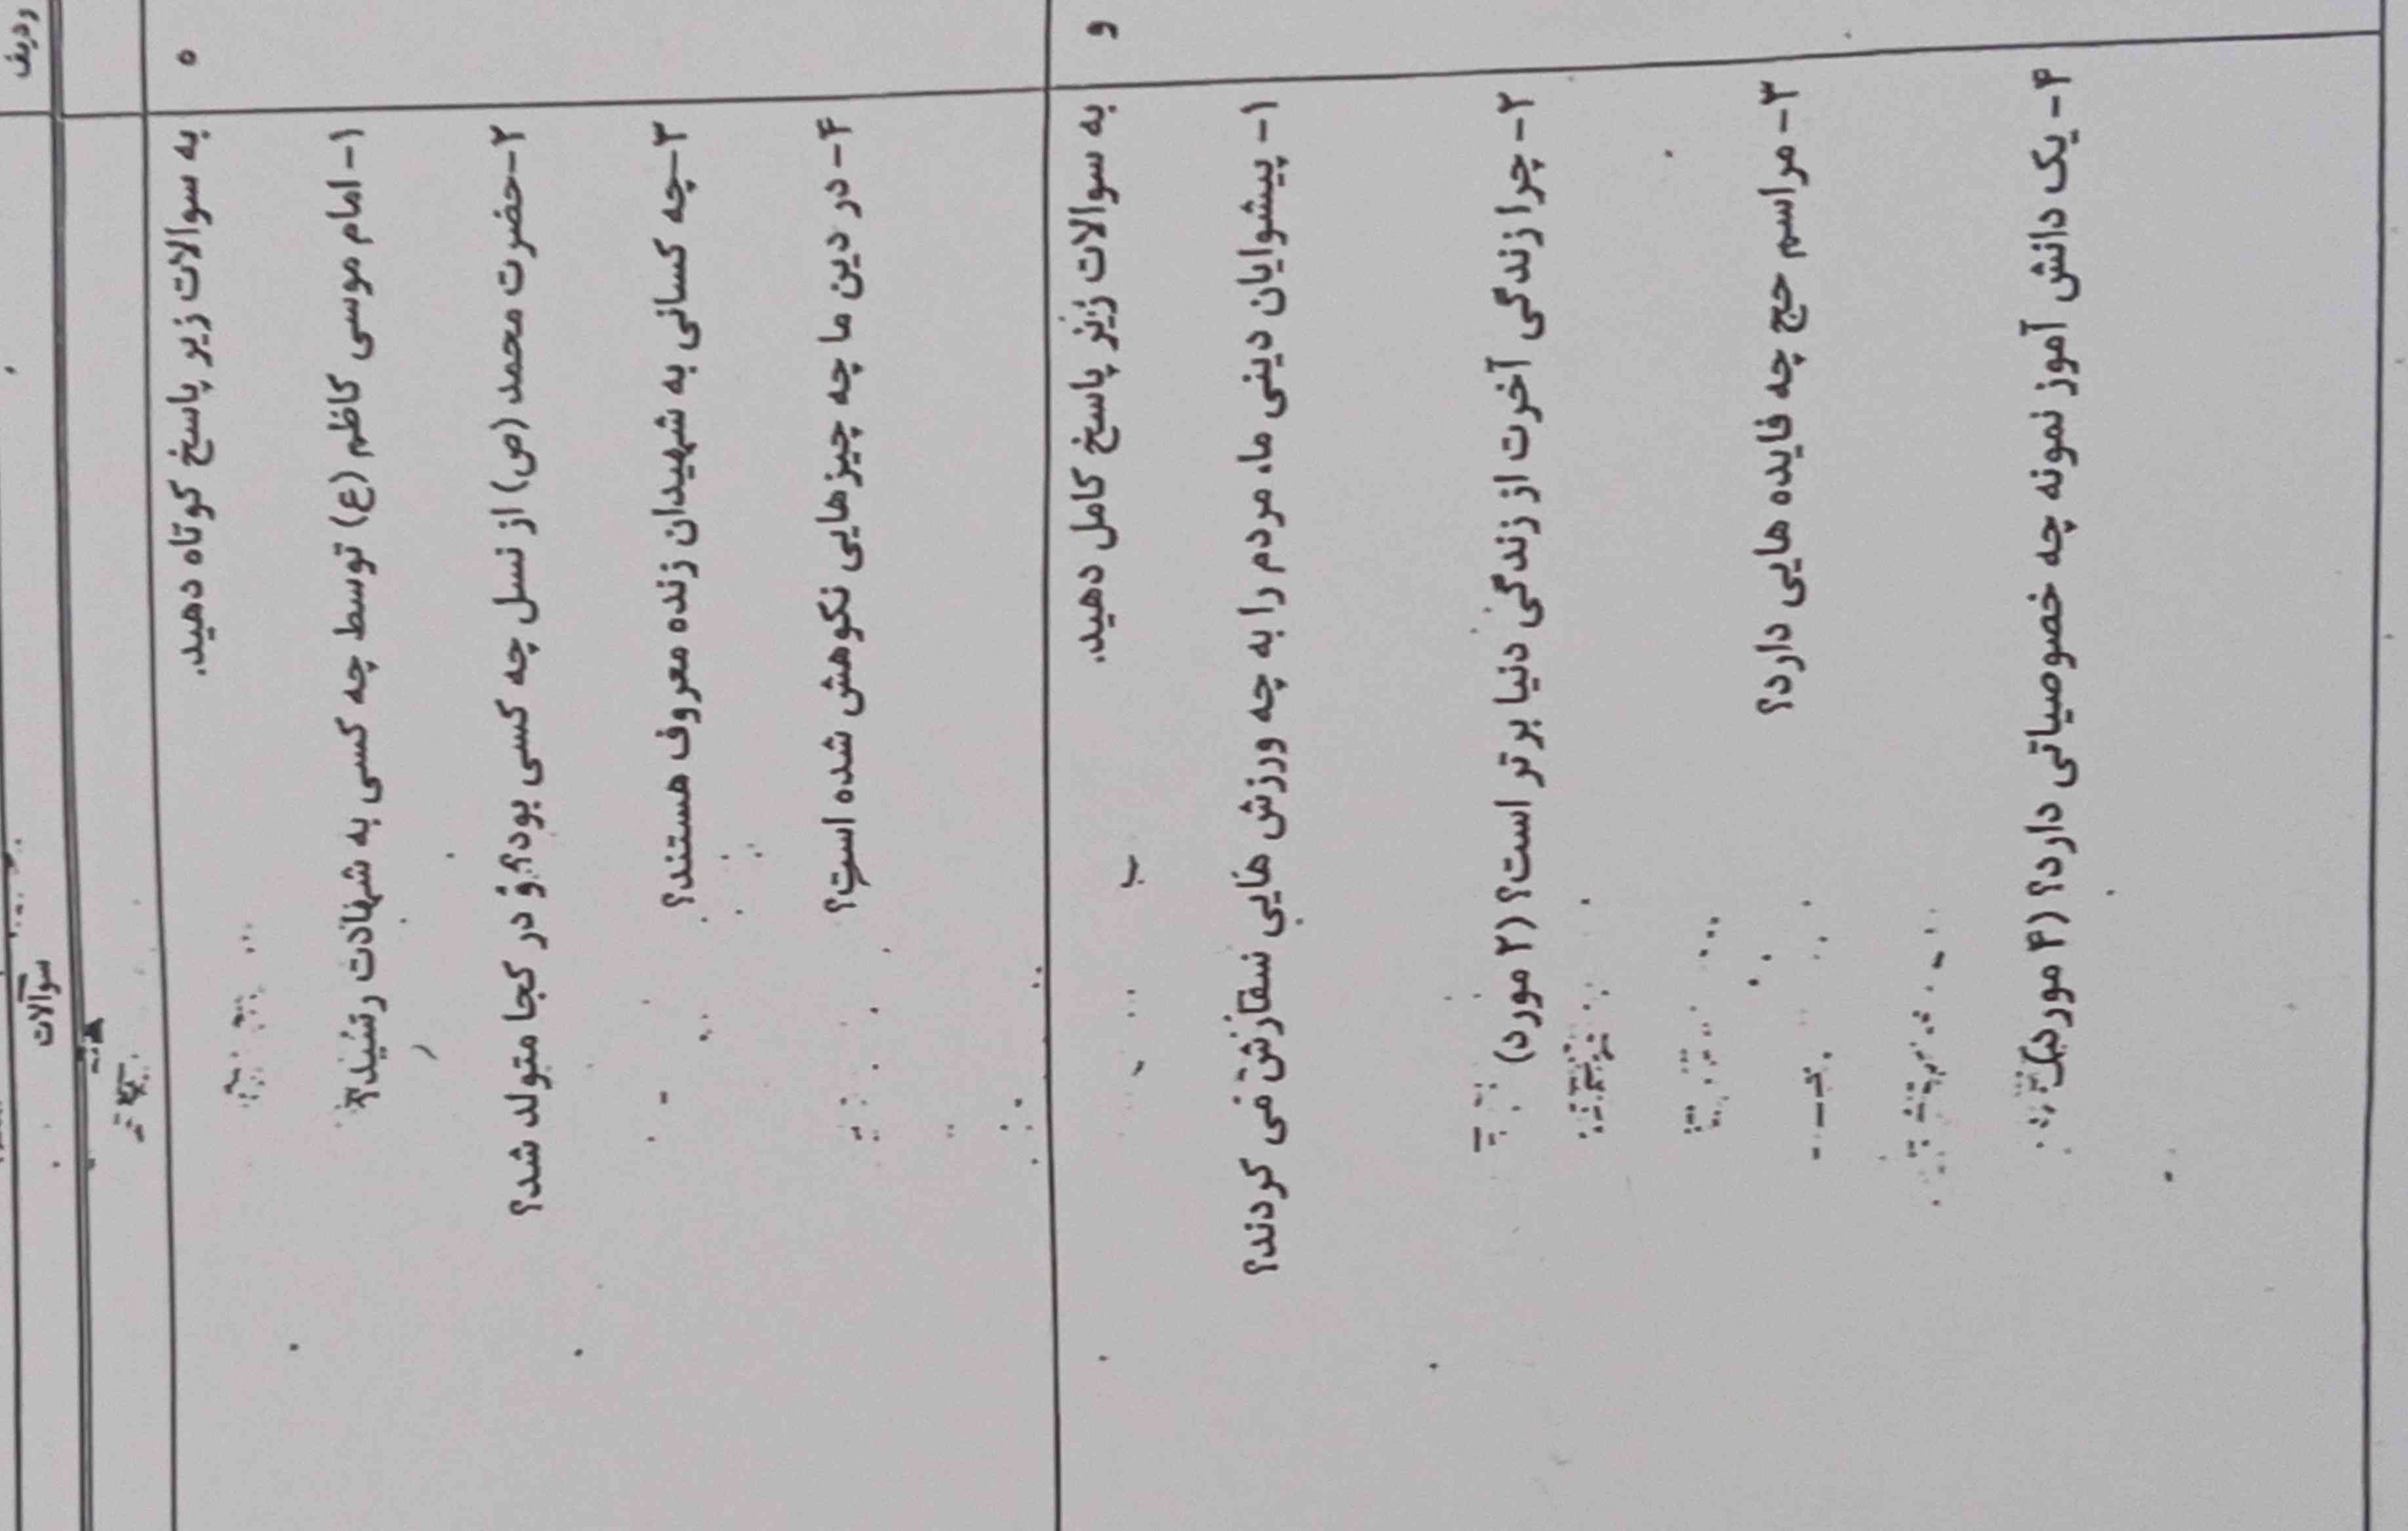 ردیف
سوالات
ه
به سوالات زیر پاسخ کوتاه دهید.
۱- امام موسی کاظم (ع) توسط چه کسی به شهادت رسید؟
۲-حضرت محمد (ص) از نسل چه کسی بود؟ و در کجا متولد شد؟
۳-چه کسانی به شهیدان زنده معروف هستند؟
۴- در دین ما چه چیزهایی نکوهش شده است؟
و
به سوالات زیر پاسخ کامل دهید.
۱- پیشوایان دینی ما، مردم را به چه ورزش هایی سفارش می کردند؟
۲-چرا زندگی آخرت از زندگی دنیا برتر است؟ (۲ مورد)
۳- مراسم حج چه فایده هایی دارد؟
۴- یک دانش آموز نمونه چه خصوصیاتی دارد؟ (۴ مورد)